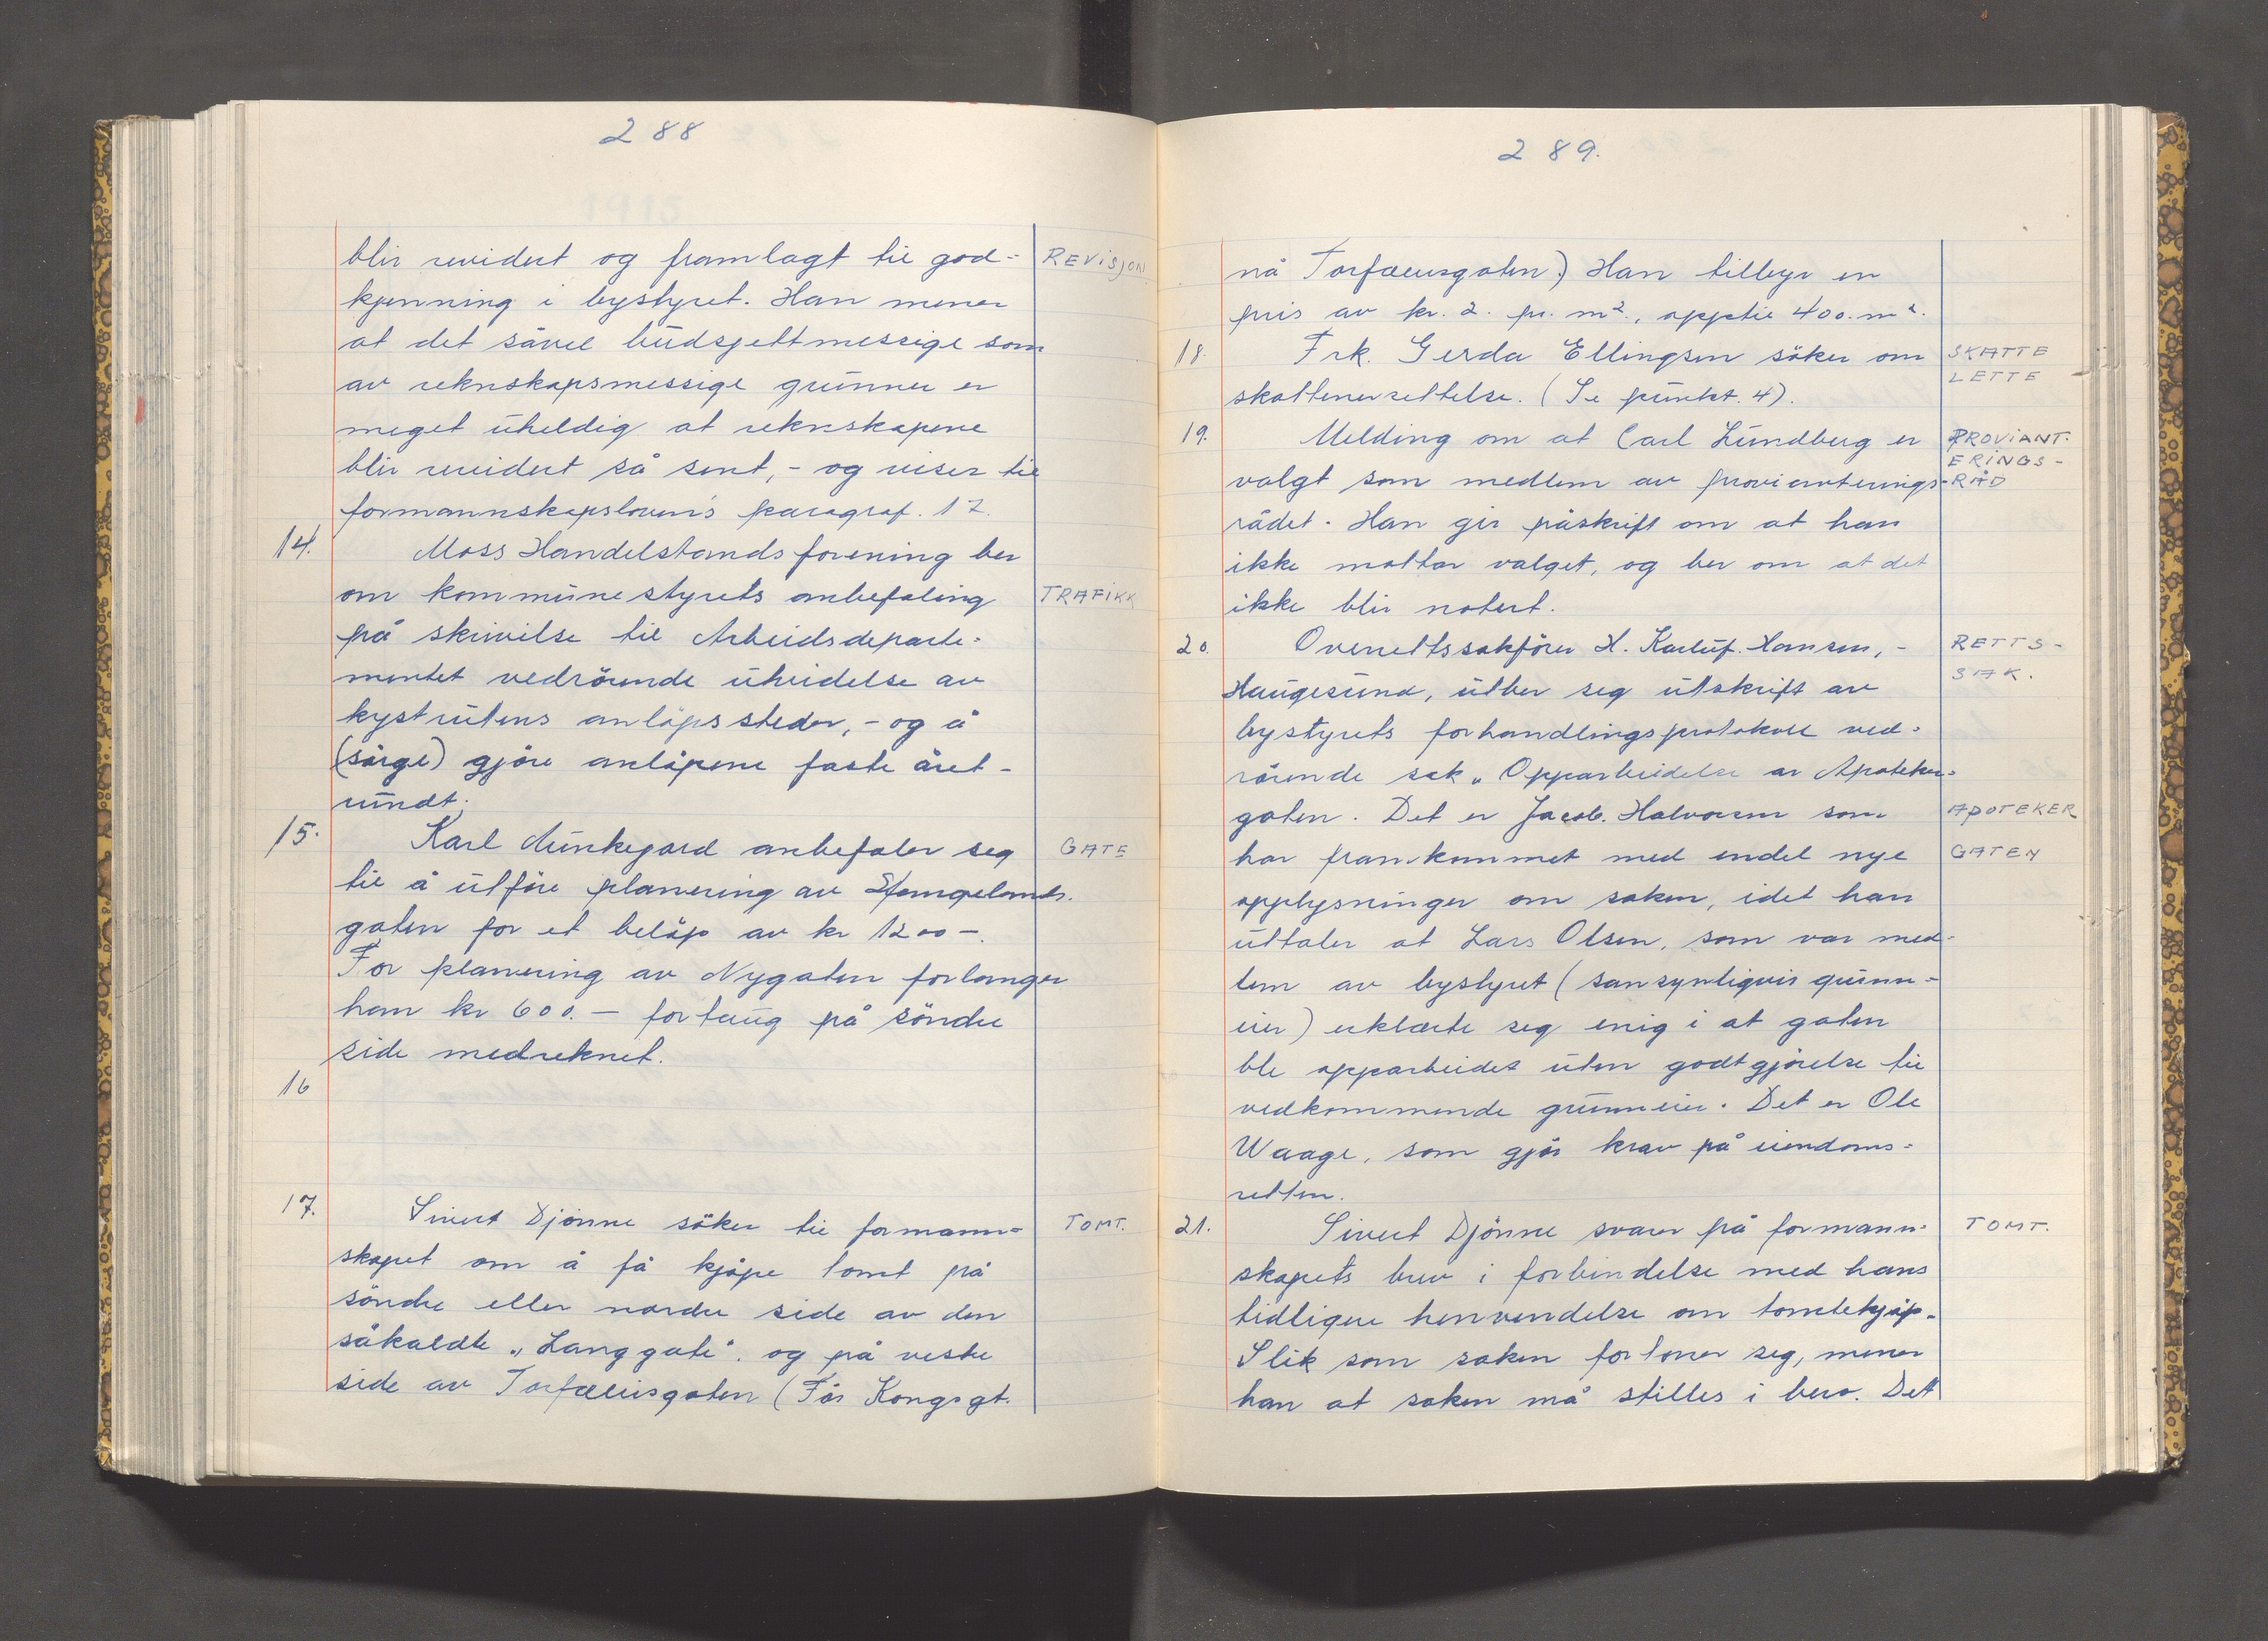 288
blir revidert og framlagt til god- REVISJON
kjenning i bystyret. Han mener
at det såvel budsjettmessige som
av reknskapsmessige grunner er
meget uheldig at reknskapene
blir revidert så sent, - og viser til
formannskapsloven's paragraf. 17.
14. Moss Handelstands forening ber
om kommunestyrets anbefaling TRAFIKK
på skrivelse til Arbeidsdeparte-
mentet vedrörende utvidelse av
kystrutens anlöpssteder, - og å
(sörge) gjöre anlöpene faste året-
rundt.
15. Karl Munkejord anbefaler seg GATE
til å utföre planering av Stemgelands.
gaten for et belöp av kr 1200 -.
For planering av Nygaten forlanger
han kr 600. - fortaug på söndre
side medreknet.
16
17. Sivert Djönne söker til formann- TOMT.
skapet om å få kjöpe tomt på
söndre eller nordre side av den
såkaldte „Langgate". og på vestre
side av Torfæusgaten (För Kongsgt.
289.
nå Torfæusgaten.) Han tilbyr en
pris av kr. 2. pr. m²., opptil 400. m².
18. Frk. Gerda Ellingsen söker om SKATTE
LETTE
skattenersettelse. (Se punkt. 4).
19. Melding om at Carl Lundberg er PROVIANT-
ERINGS-
valgt som medlem av provianterings- RÅD
rådet. Han gir påskrift om at han
ikke mottar valget, og ber om at det
ikke blir notert.
20. Overrettssakförer H. Hansen, - RETTS-
SAK.
Haugesund, utber seg utskrift av
bystyrets forhandlingsprotokoll ved-
rörende sak „ Opparbeidelse av Apoteker-
gaten. Det er Jacob. Halvorsen som APOTEKER
har framkommet med endel nye GATEN
opplysninger om saken, idet han
uttaler at Lars Olsen, som var med-
lem av bystyret (sansynligvis grunn-
eier) erklærte seg enig i at gaten
ble opparbeidet uten godtgjörelse til
vedkommende grunneier. Det er Ole
Waage, som gjör krav på eiendoms-
retten.
21. Sivert Djönne svarer på formann- TOMT.
skapets brev i forbindelse med hans
tidligere henvendelse om tomtekjöp.
Slik som saken fortoner seg, mener
han at saken må stilles i bero. Det